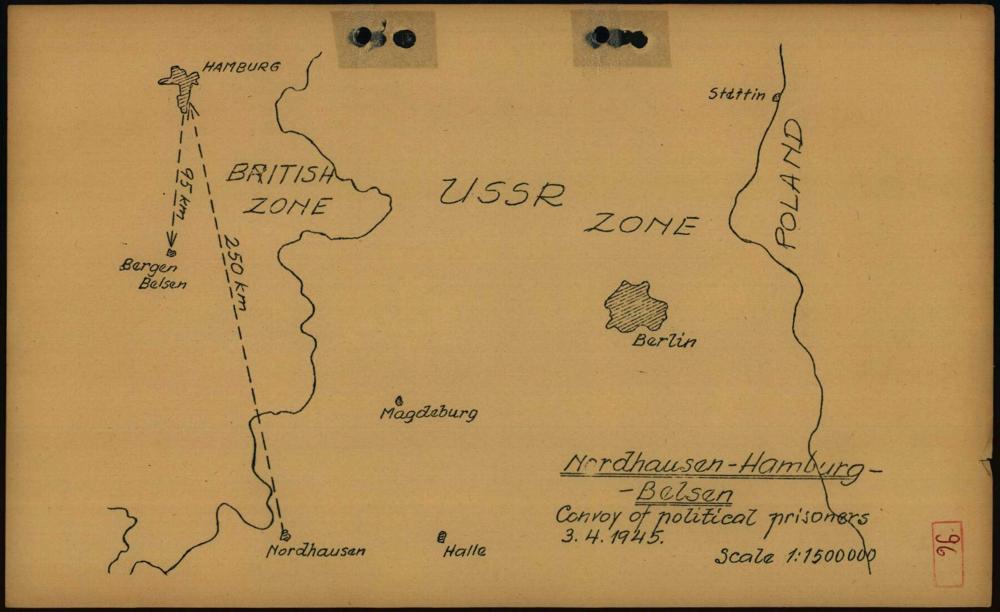 HAMBURG
Stettin
95 km
BRITISH
ZONE
USSR
ZONE
POLAND
250 km
Bergen
Belsen
Berlin
Magdeburg
Nordhausen-Hamburg-
-Belsen
Convoy of political prisoners
3.4.1945.
Scale 1:1500000
Nordhausen
Halle
96